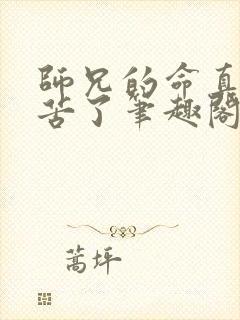 師兄的命真
苦了筆趣閣
蒿坪